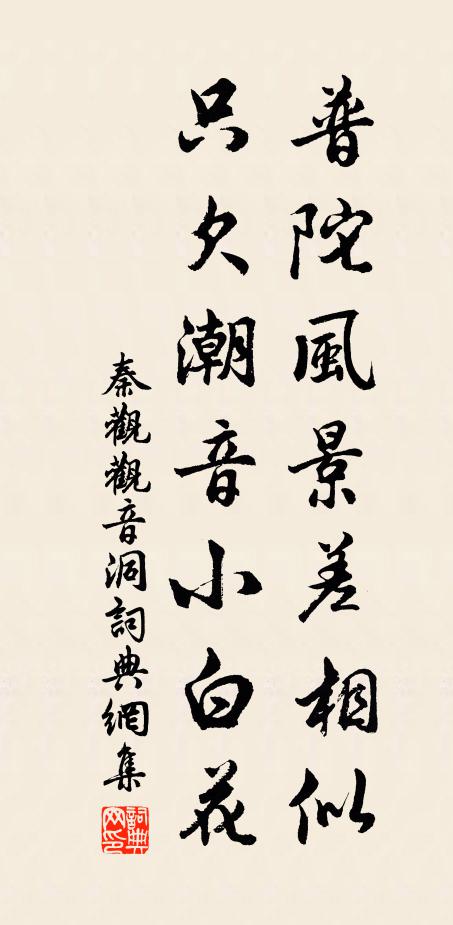 普陀風景差相似
只欠潮音小白花
秦觀觀音洞詞典網集
詞典網印